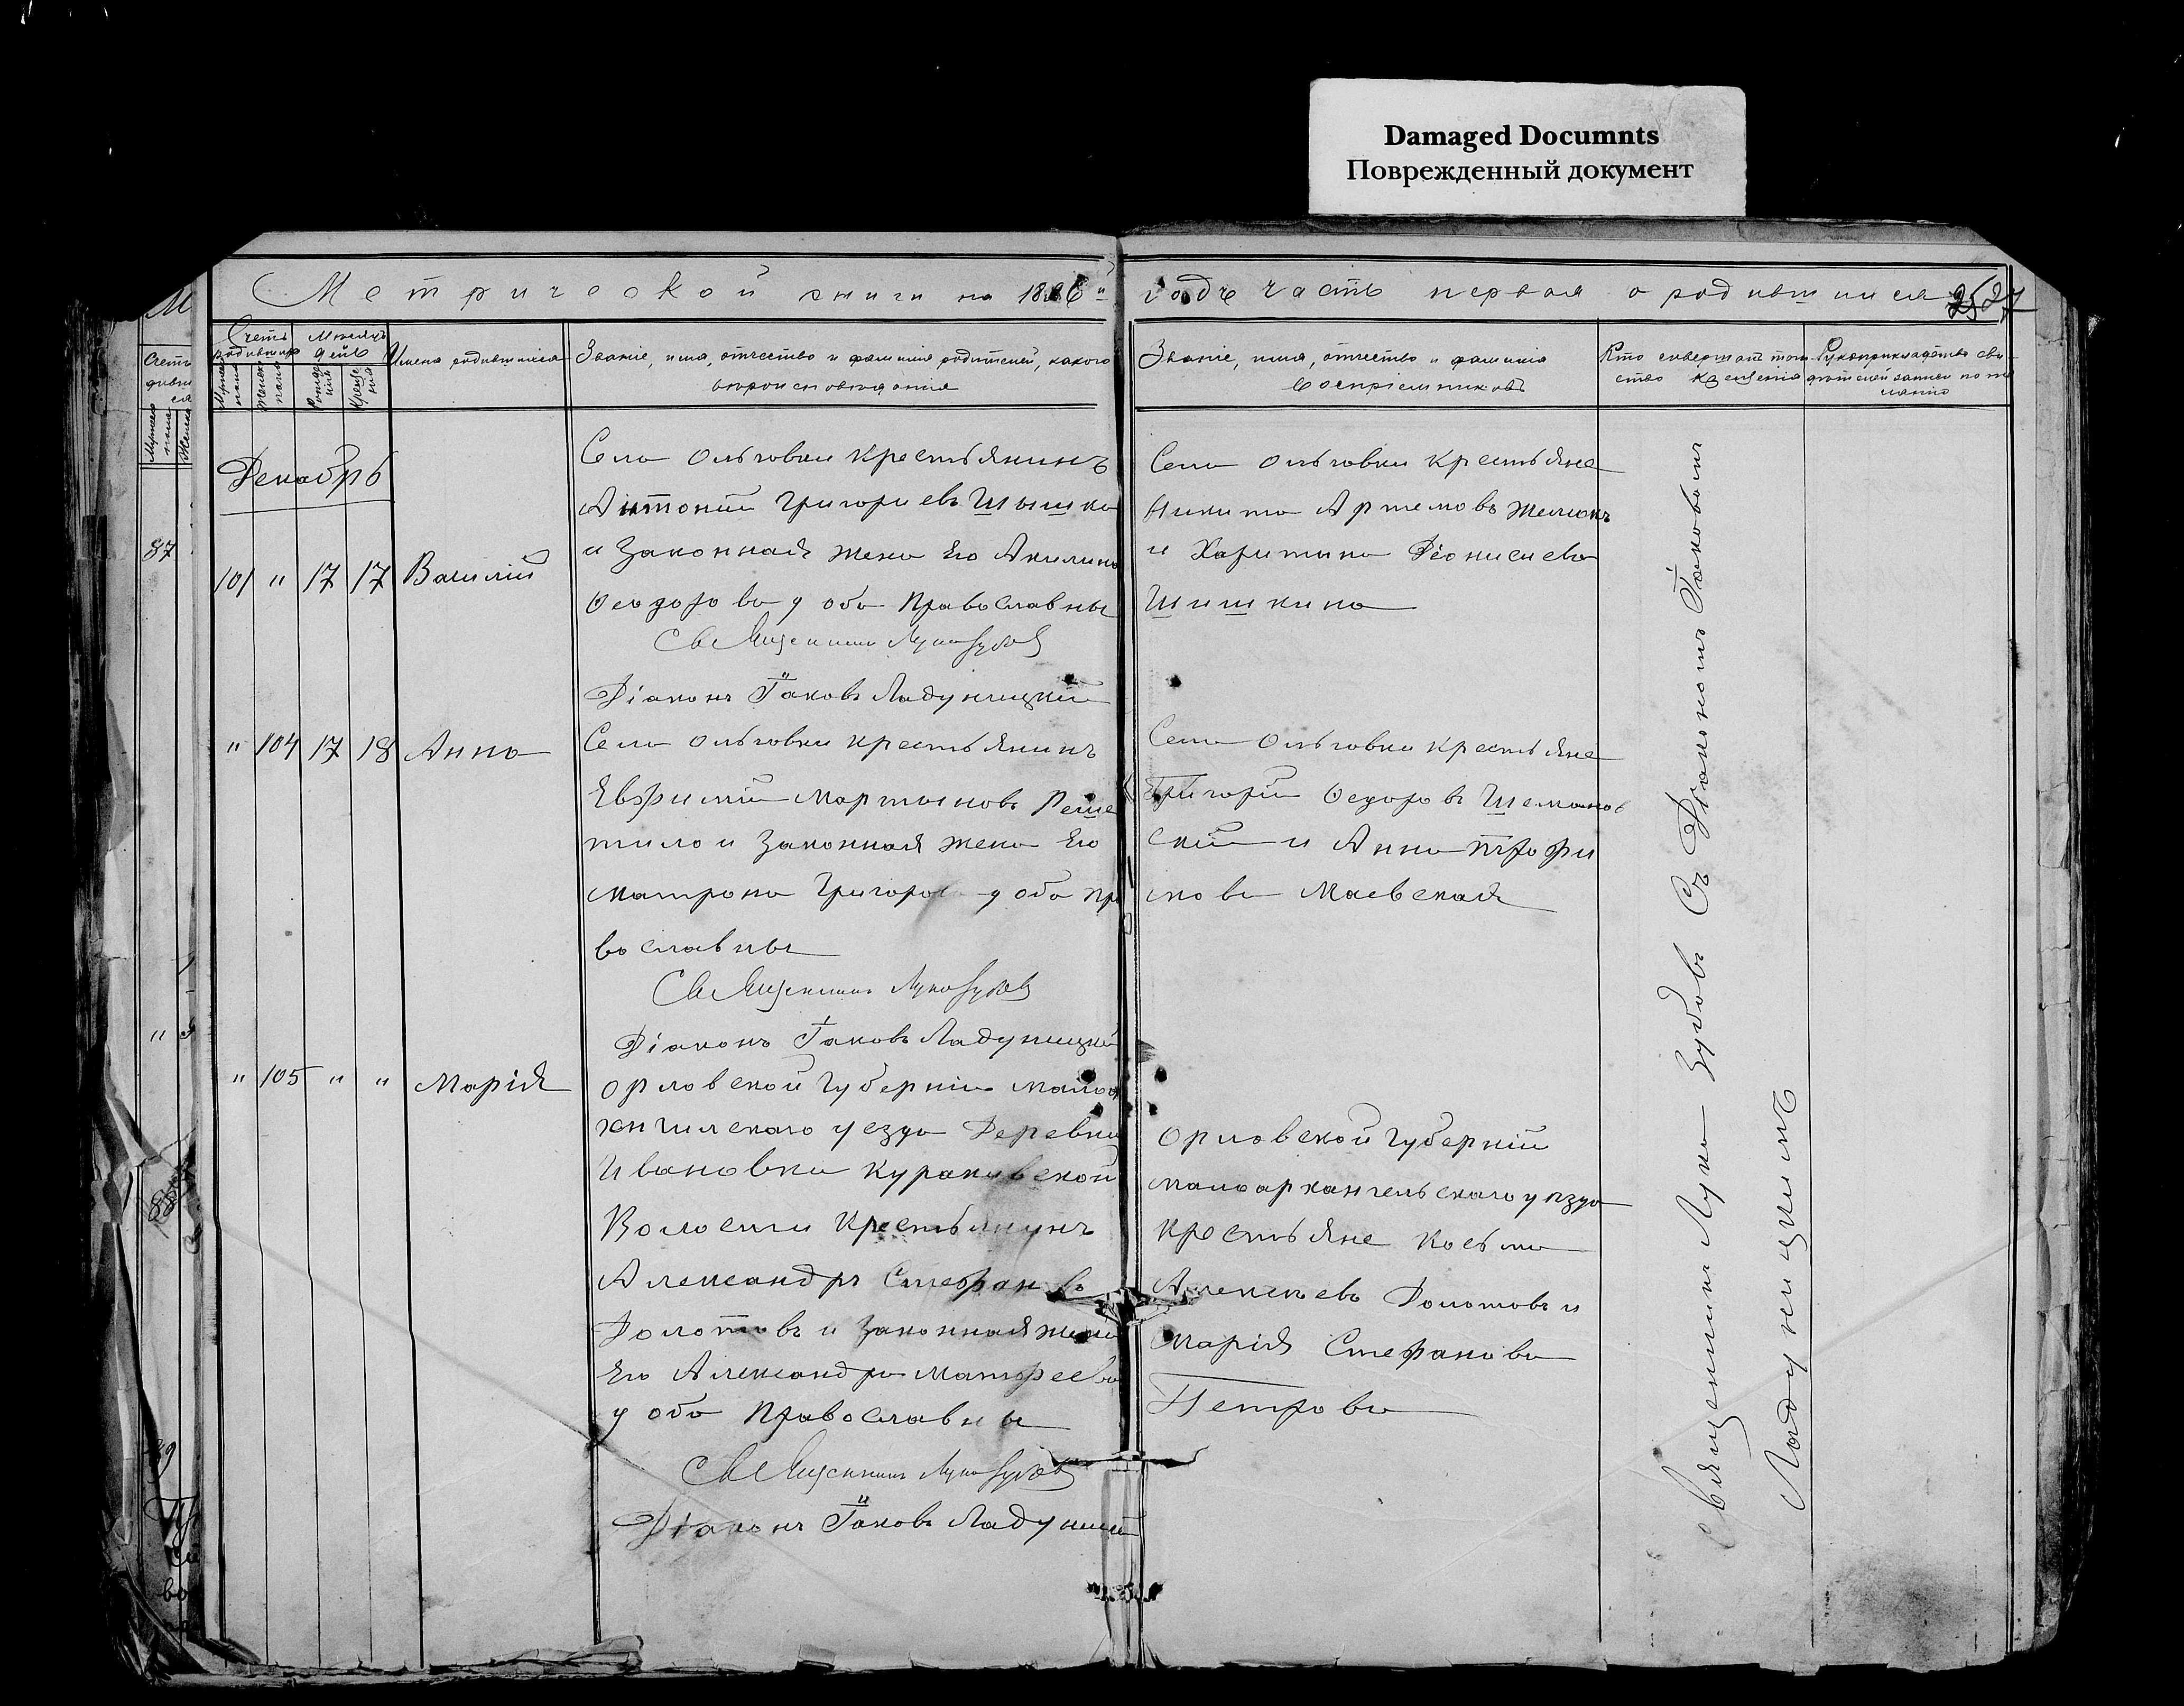 Damaged Documnts
Поврежденный документ
Метрической книги на 1886й годъ часть первая о родившихся
Счетъ родившихся
Мужеска пола
Женска пола
Месяцъ День
Рожденія
Крещенія
Имена родившихся
Званіе, имя, отчество и фамилія родителей, какого
вероисповеданія
Званіе, имя, отчество и фамилія
воспріемниковъ
Кто совершалъ таин
ство крещенія
Рукоприкладство сви
дѣтелей записи по же
ланію
Декабрь
101 " 17 17 Василій
Села Ольговки Крестьянинъ
Антоній Григориевъ Шышки
и Законная жена Его Акилина
Ѳеодорова у оба Православны
Священникъ Лука Зубовъ
Діаконъ Іаковъ Ладуницкій
Села Ольговки Крестьяне
Никита Артемовъ
и Харитина Діонисиева
Шишкина
" 104 17 18 Анна
Села Ольговки крестьянинъ
Евфимій Мартыновъ Реше
тило и Законная жена Его
Матрона у оба Пра
вославны
Священникъ Лука Зубовъ
Діаконъ Іаковъ Ладуницкій
Села Ольговки крестьяне
Григорій Ѳедоровъ Шеманов
скій и Анна Трофи
мова Маевская
" 105 " " Марія
Орловской Губерніи Малоа
хнгилскаго уезда Деревни
Ивановки Кураковской
Волости Крестьянинъ
Александръ Стефановъ
Долотовъ и Законная жена
Его Александра Матфеева
у оба Православны
Священникъ Лука Зубовъ
Діаконъ Іаковъ Ладуницкій
Орловской Губерніи
малоархангельскаго уѣзда
Крестьяне Косьма
Алексѣевъ Долотовъ и
Марія Стефанова
Петрова
Священникъ Лука Зубовъ Съ Діакономъ Іаковомъ
Ладуницкимъ
87
88